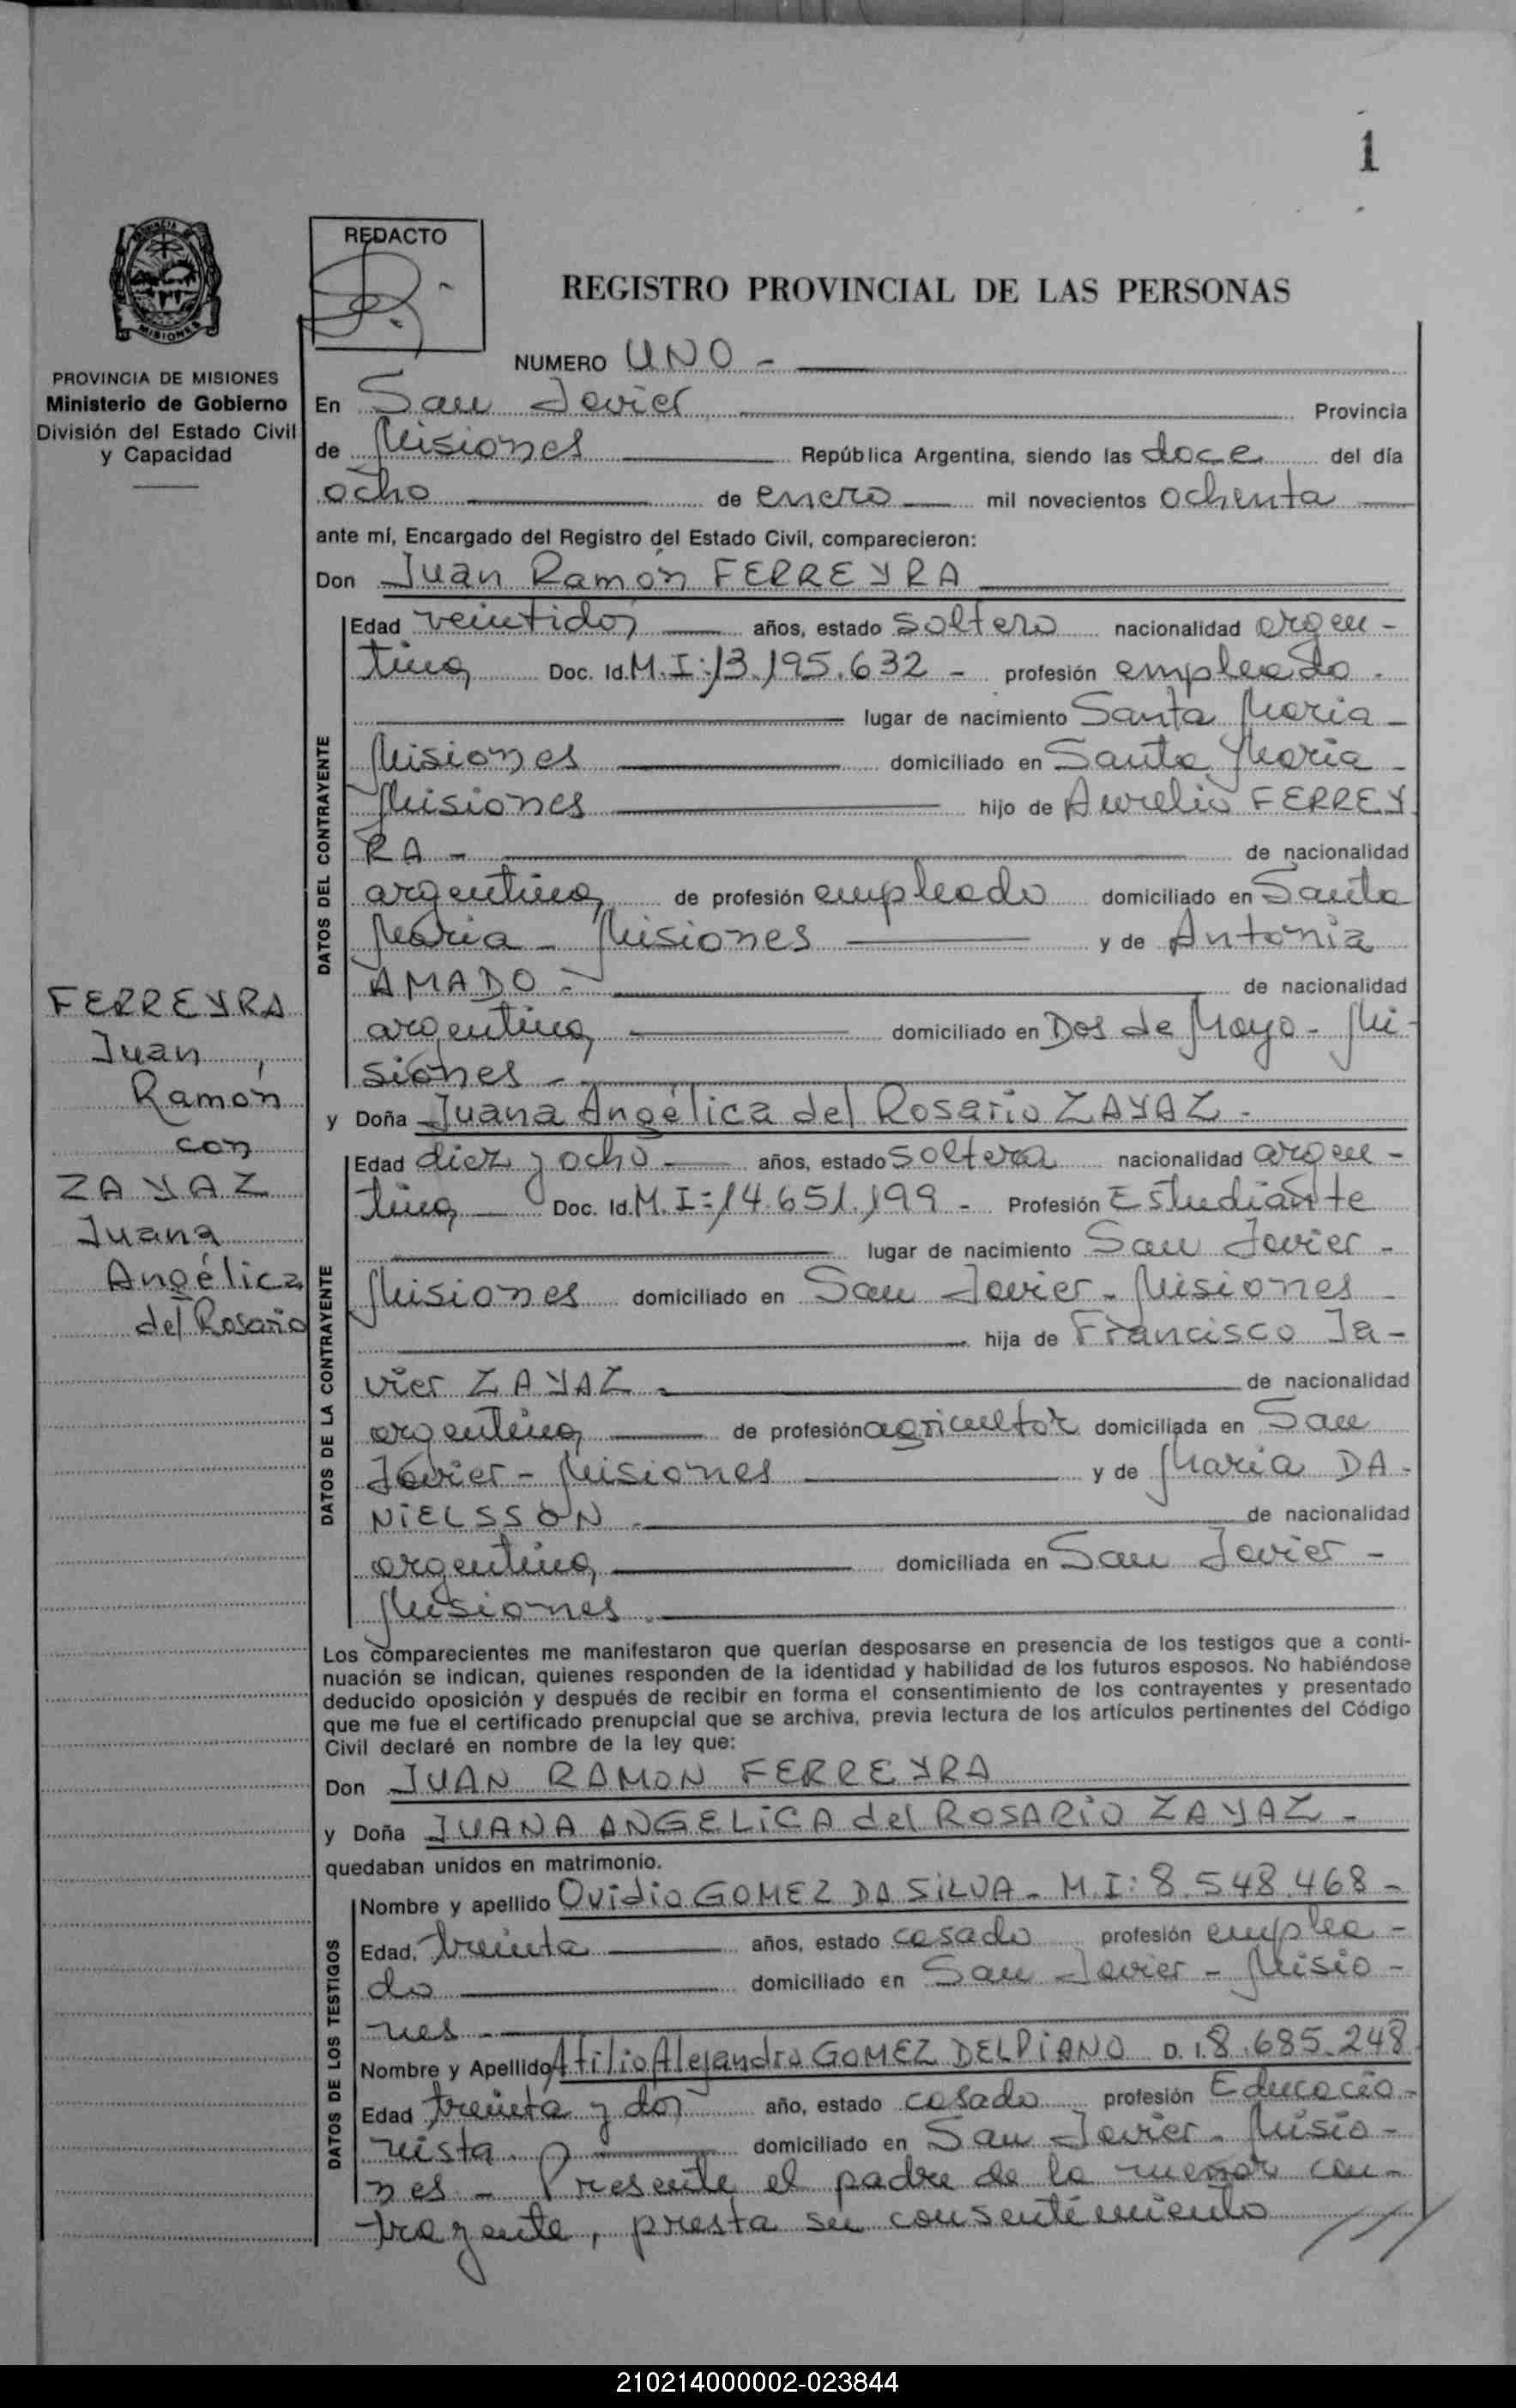 1
REDACTO
REGISTRO PROVINCIAL DE LAS PERSONAS
MISIONES
PROVINCIA DE MISIONES
Ministerio de Gobierno
División del Estado Civil
y Capacidad
NUMERO UNO -
En San Javier Provincia
de Misiones República Argentina, siendo las doce del día
ocho de enero mil novecientos ochenta
ante mí, Encargado del Registro del Estado Civil, comparecieron:
Don Juan Ramón FERREYRA
DATOS DEL CONTRAYENTE
Edad veintidos años, estado soltero nacionalidad argen-
tina Doc. Id. M.I:13.195.632 - profesión empleado -
lugar de nacimiento Santa Maria -
Misiones domiciliado en Santa Maria -
Misiones hijo de Aurelio FERREY
RA - de nacionalidad
argentina de profesión empleado domiciliado en Santa
Maria - Misiones y de Antonia
AMADO - de nacionalidad
argentina domiciliado en Dos de Mayo - Mi-
siones -
FERREYRA
Juan
Ramón
con
ZAYAZ
Juana
Angélica
del Rosario
y Doña Juana Angélica del Rosario ZAYAZ -
DATOS DE LA CONTRAYENTE
Edad diez y ocho - años, estado soltera nacionalidad argen-
tina Doc. Id. M.I:14.651.199 - Profesión Estudiante
lugar de nacimiento San Javier -
Misiones domiciliado en San Javier - Misiones -
hija de Francisco Ja-
vier ZAYAZ - de nacionalidad
argentina de profesión agricultor domiciliada en San
Javier - Misiones y de Maria DA-
NIELSSON - de nacionalidad
argentina domiciliada en San Javier -
Misiones -
Los comparecientes me manifestaron que querían desposarse en presencia de los testigos que a conti-
nuación se indican, quienes responden de la identidad y habilidad de los futuros esposos. No habiéndose
deducido oposición y después de recibir en forma el consentimiento de los contrayentes y presentado
que me fue el certificado prenupcial que se archiva, previa lectura de los artículos pertinentes del Código
Civil declaré en nombre de la ley que:
Don JUAN RAMON FERREYRA
y Doña JUANA ANGELICA del ROSARIO ZAYAZ -
quedaban unidos en matrimonio.
DATOS DE LOS TESTIGOS
Nombre y apellido Ovidio GOMEZ DA SILVA - M.I: 8.548.468 -
Edad, treinta años, estado casado profesión emplea-
do domiciliado en San Javier - Misio-
nes -
Nombre y Apellido Atilio Alejandro GOMEZ DELPIANO D.I. 8.685.248
Edad treinta y dos año, estado casado profesión Educacio-
nista. domiciliado en San Javier - Misio-
nes - Presente el padre de la menor con-
trayente, presta su consentimiento ///
210214000002-023844